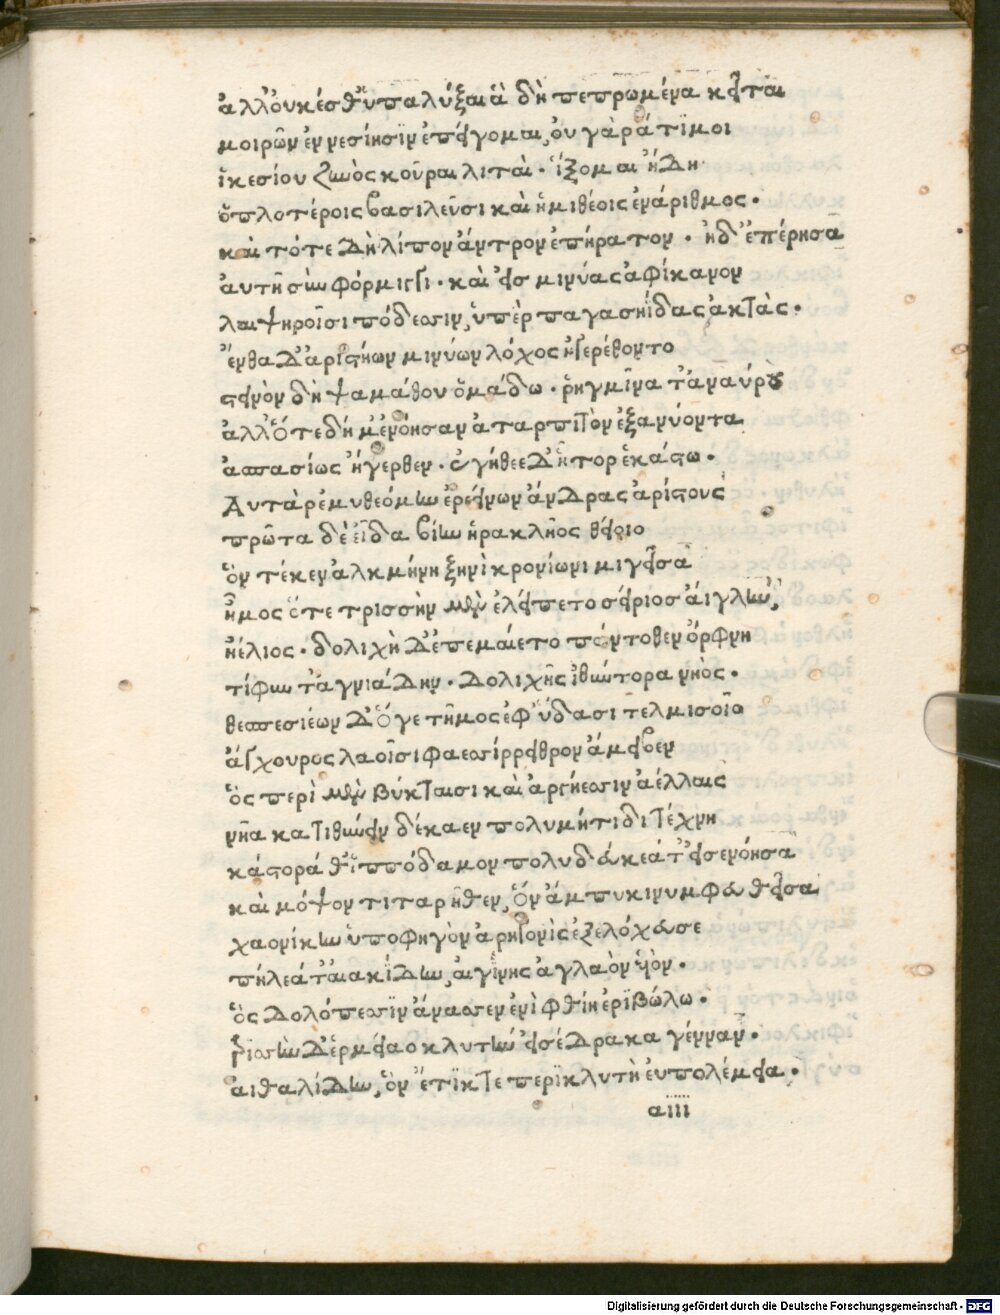 ἀλλ' οὐκ ἔσθ' ὑπαλύξαι ἃ δὴ πεπρωμένα κεῖται
μοιρῶν ἐννεσίησιν ἐπείγομαι, οὐ γὰρ ἄτιμοι
ἱκεσίου ζωὸς κοῦραι λιταί. ἵξομαι ἤδη
ὁπλοτέροις βασιλεῦσι καὶ ἡμιθέοις ἐνάριθμος.
καὶ τότε δὴ λίπον ἄντρον ἐπήρατον. ἠδ' ἐπέρησα
αὐτῇ σὺν φόρμιγγι. καὶ εἰς μινύας ἀφίκανον
λαιψηροῖσι πόδεσσιν, ὑπὲρ παγασηΐδας ἀκτάς.
ἔνθα δ' ἀριστήων μινύων λόχος ἠγερέθοντο
στεῖνον δὴ ψαμάθου ὁμάδω. ῥηγμῖνα τ' ἀναύρου
ἀλλ' ὅτε δή μ' ἐνόησαν ἀταρπιτὸν ἐξανύοντα
ἀσπασίως ἤγερθεν. ἐγήθεε δ' ἦτορ ἑκάστω.
Αὐτὰρ ἐμυθεόμην ἐρεείνων ἄνδρας ἀρίστους
πρῶτα δὲ εἶδα βίην ἡρακλῆος θείοιο
ὃν τέκεν ἀλκμήνη ζηνὶ κρονίωνι μιγεῖσα
ἦμος ὅτε τρισσὴν μὲν ἐλείπετο σείριος αἴγλην,
ἠέλιος. δολιχὴ δ' ἐπεμαίετο πάντοθεν ὄρφνη
τίφυν τ' ἀγνιάδην. δολιχῆς ἰθύντορα νηός.
θεσπεσιέων δ' ὅγε τῆμος ἐφ' ὕδασι τελμισοῖο
ἀγχούρος λαοῖσι φαεσσίρρειθρον ἄμειβεν
ὃς περὶ μὲν βύκταισι καὶ ἀργήεσσιν ἀέλλαις
νῆα κατιθύνειν δέκαεν πολυμήτιδι τέχνη
κάστορά θ' ἱππόδαμον πολυδεύκεά τ' εἰσενόησα
καὶ μόψον τιταρῆθεν, ὃν ἄμπυκι νυμφευθεῖσα
χαονίκην ὑπὸ φηγὸν ἀρηγονὶς ἐξελόχευσε
πηλέα τ' αἰακίδην, αἰγίνης ἀγλαὸν υἱόν.
ὃς δολόπεσσιν ἄνασσεν ἐνὶ φθίη ἐριβώλω.
τρισσὴν δ' ἑρμείαο κλυτὴν εἰσέδρακα γένναν.
αἰθαλίδην, ὃν ἔτικτε περικλυτὴ εὐπολέμεια.
aiii
Digitalisierung gefördert durch die Deutsche Forschungsgemeinschaft - DFG